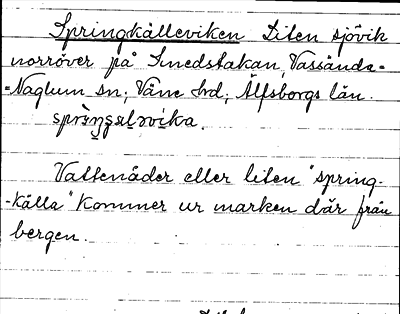 Springkälleviken Liten sjövik
norröver på Smedstakan, Vassända=
=Naglum sn, Väne hd, Älfsborgs län.
Vattenåder eller liten "spring-
-källa" kommer ur marken där från
bergen.